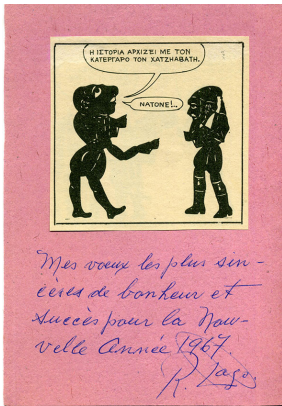 Η ΙΣΤΟΡΙΑ ΑΡΧΙΖΕΙ ΜΕ ΤΟΝ
ΚΑΤΕΡΓΑΡΟ ΤΟΝ ΧΑΤΖΗΑΒΑΤΗ.
ΝΑΤΟΝΕ!..
Mes voeux les plus sin-
cères de bonheur et
succès pour la Nou-
velle Année 1967.
R. Zago